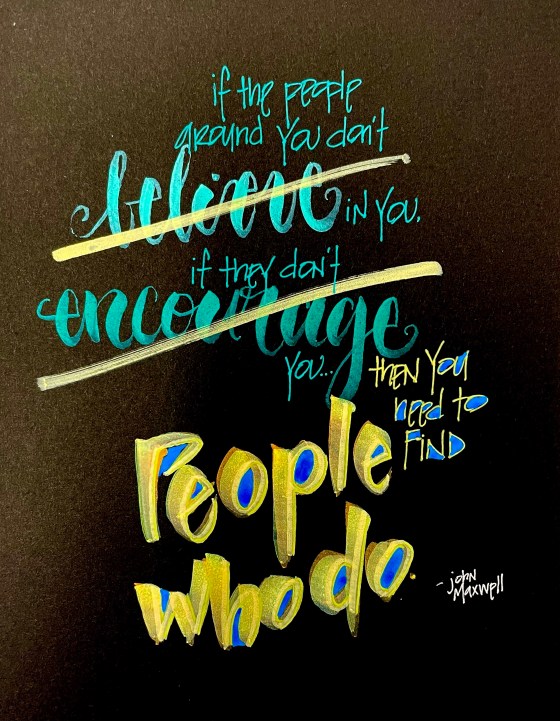 if the people
around you don't
believe in you.
if they don't
encourage
you...
then you
need to
FIND
People
who do.
- john
Maxwell